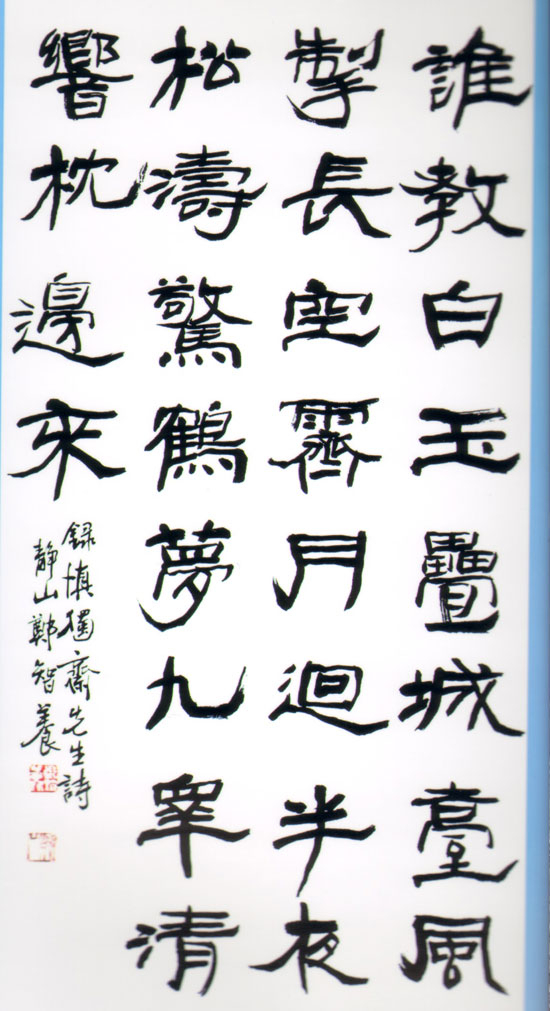 誰教白玉疊城臺風
掣長空霽月迴半夜
松濤驚鶴夢九睪清
響枕邊來
録慎獨齋先生詩
靜山鄭智養